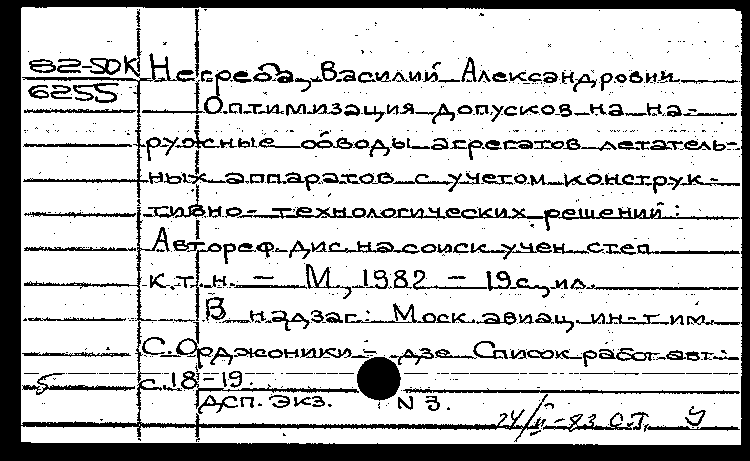 82-50К Негреба, Василий Александрович
6255
Оптимизация допусков на на-
ружные обводы агрегатов летатель-
ных аппаратов с учетом конструк-
тивно-технологических решений:
Автореф. дис. на соиск. учен. степ.
к.т.н. – М., 1982 – 19с., ил.
В надзаг.: Моск. авиац. ин-т им.
С. Орджоники – дзе Список работ авт.:
с. 18-19.
ДСП. Экз. N 3.